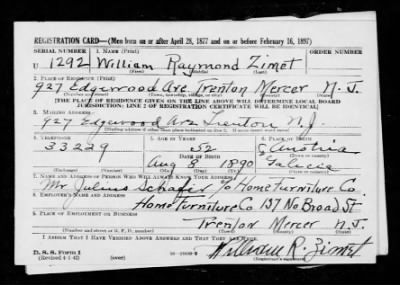 REGISTRATION CARD—(Men born on or after April 28, 1877 and on or before February 16, 1897)
SERIAL NUMBER 1. NAME (Print) ORDER NUMBER
U 1292 William Raymond Zimet
(First) (Middle) (Last)
2. PLACE OF RESIDENCE (Print)
927 Edgewood Ave Trenton Mercer N. J.
(Number and street) (Town, township, village, or city) (County) (State)
[THE PLACE OF RESIDENCE GIVEN ON THE LINE ABOVE WILL DETERMINE LOCAL BOARD
JURISDICTION; LINE 2 OF REGISTRATION CERTIFICATE WILL BE IDENTICAL]
3. MAILING ADDRESS
927 Edgewood Ave Trenton N.J.
[Mailing address if other than place indicated on line 2. If same insert word same]
4. TELEPHONE 5. AGE IN YEARS 6. PLACE OF BIRTH
33229 52 Austria
DATE OF BIRTH
Aug 8 1890 Galicia
(Exchange) (Number) (Mo.) (Day) (Yr.) (State or country)
7. NAME AND ADDRESS OF PERSON WHO WILL ALWAYS KNOW YOUR ADDRESS
Mr Julius Schafer % Home Furniture Co.
8. EMPLOYER'S NAME AND ADDRESS
Home Furniture Co. 137 No Broad St
9. PLACE OF EMPLOYMENT OR BUSINESS
Trenton Mercer N. J.
(Number and street or R. F. D. number) (Town) (County) (State)
I AFFIRM THAT I HAVE VERIFIED ABOVE ANSWERS AND THAT THEY ARE TRUE.
D. S. S. Form 1
(Revised 4-1-42) (over)
William R. Zimet
(Registrant's signature)